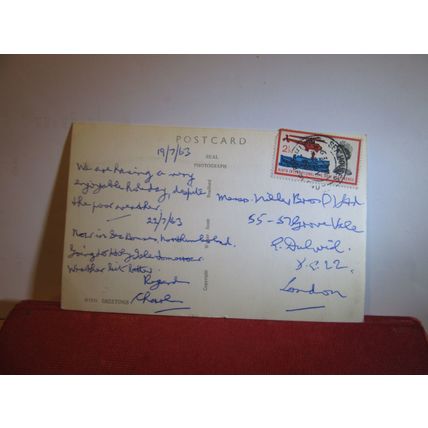 POSTCARD
REAL
PHOTOGRAPH
19/7/63
We are having a very
enjoyable holiday, despite
the poor weather.
22/7/63
Now in Northumberland.
Going to Holy Isle tomorrow
Weather bit better.
Regards
Charles
WITH GREETINGS
Copyright
2½
Messrs. Bros Ltd
55-57 Grove Vale
E. Dulwich
S.E.22.
London